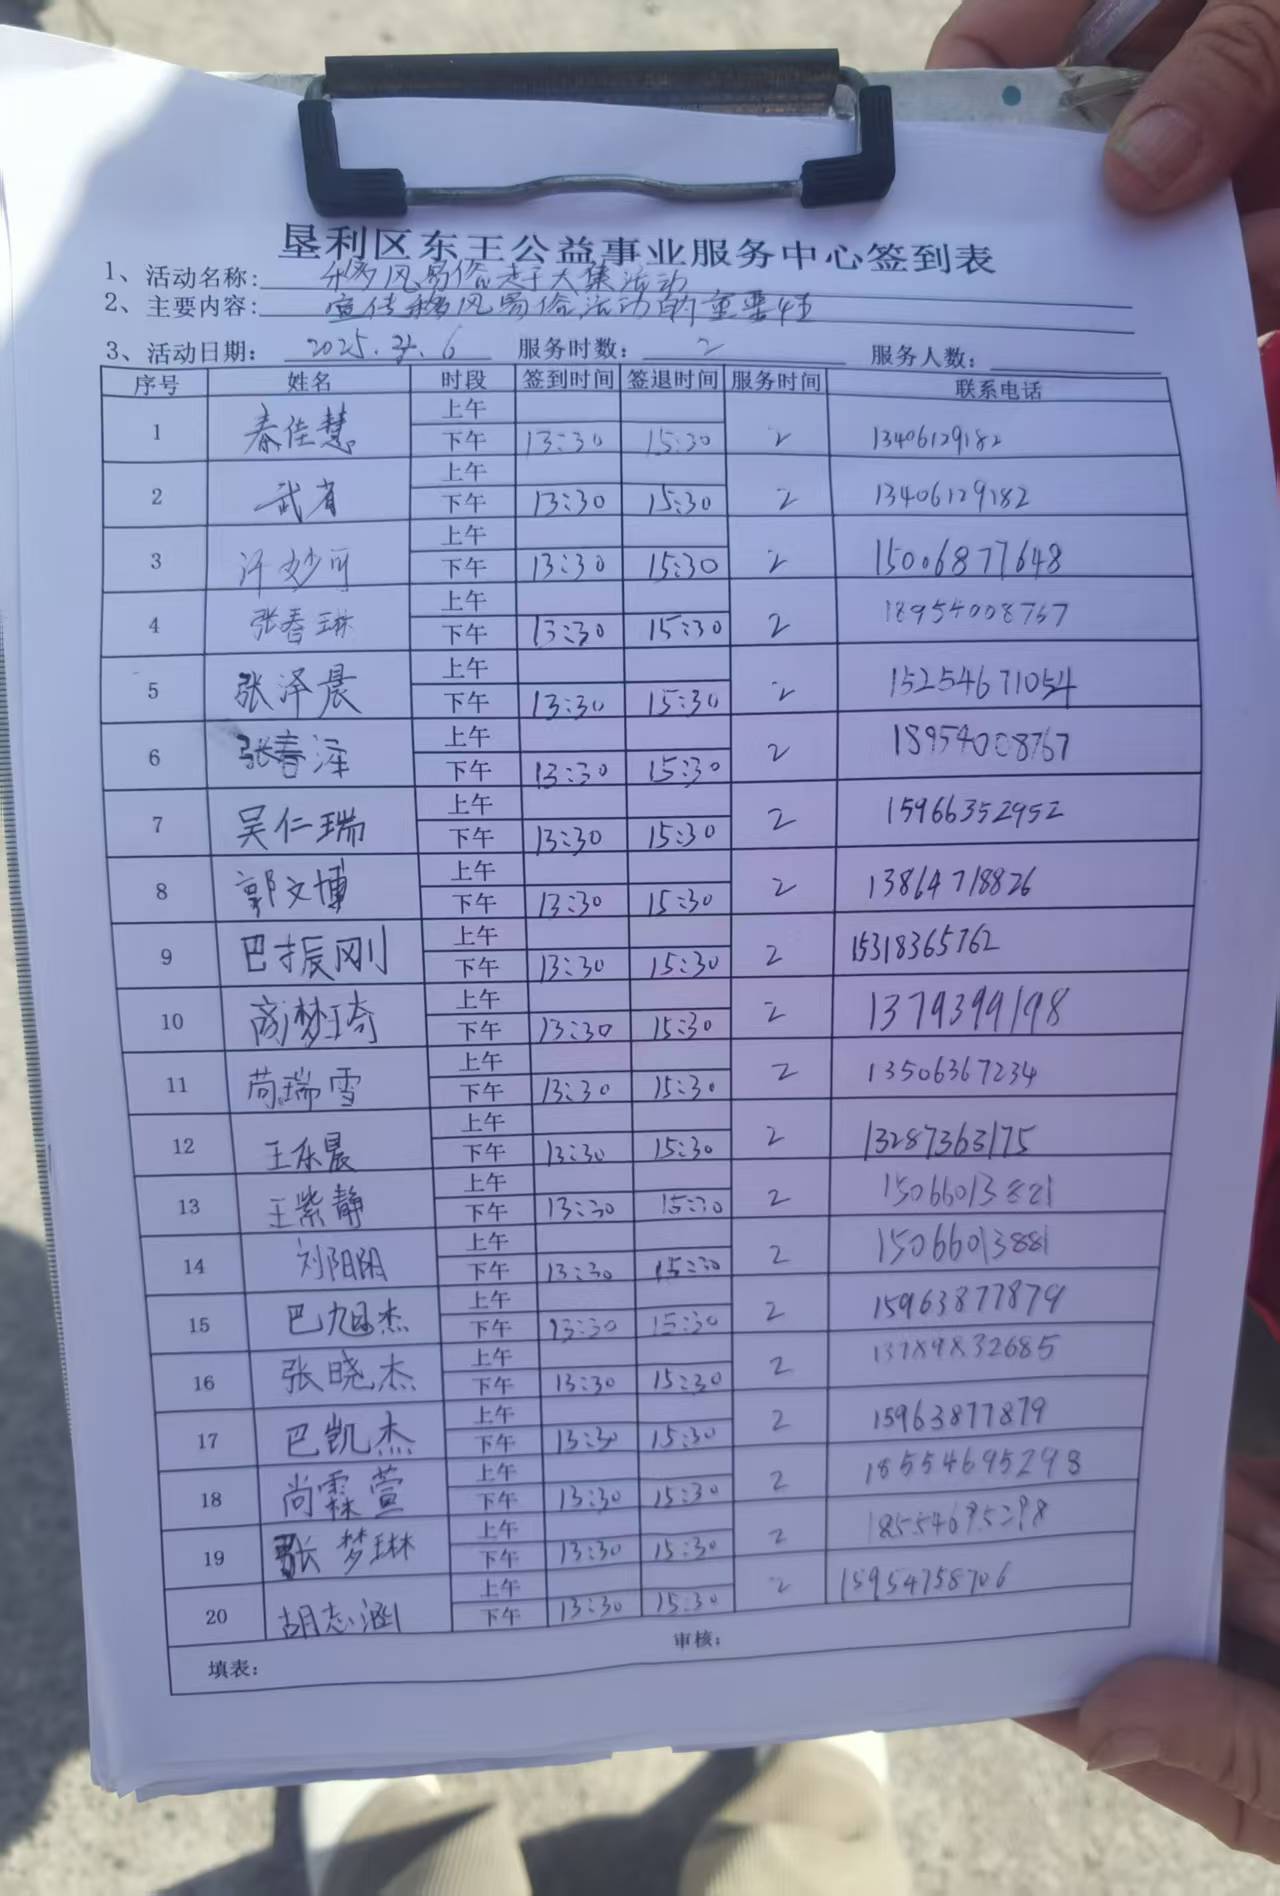 垦利区东王公益事业服务中心签到表
1、活动名称: 移风易俗走于大集活动
2、主要内容: 宣传移风易俗活动的重要性
3、活动日期: 2025. . 6 服务时数: 2 服务人数:
序号 姓名 时段 签到时间 签退时间 服务时间 联系电话
上午
1 秦佳慧 下午 13:30 15:30 2 13406129182
上午
2 武省 下午 13:30 15:30 2 13406129182
上午
3 许妙可 下午 13:30 15:30 2 15006877648
上午
4 张春琳 下午 13:30 15:30 2 18954008767
上午
5 张泽晨 下午 13:30 15:30 2 15254671054
上午
6 张春泽 下午 13:30 15:30 2 18954008767
上午
7 吴仁瑞 下午 13:30 15:30 2 15966352952
上午
8 郭文博 下午 13:30 15:30 2 13864718826
上午
9 巴振刚 下午 13:30 15:30 2 15318365762
上午
10 梦琦 下午 13:30 15:30 2 1379399198
上午
11 苟瑞雪 下午 13:30 15:30 2 13506367234
上午
12 王东晨 下午 13:30 15:30 2 13287363175
上午
13 王紫静 下午 13:30 15:30 2
上午
14 刘阳阳 下午 13:30 15:30 2 15066013881
上午
15 巴旭杰 下午 13:30 15:30 2 15963877879
上午
16 张晓杰 下午 13:30 15:30 2 13789832685
上午
17 巴凯杰 下午 13:30 15:30 2 15963877879
上午
18 尚霖萱 下午 13:30 15:30 2 18554695298
上午
19 张梦琳 下午 13:30 15:30 2 18554695298
上午
20 胡志涵 下午 13:30 15:30 2 15954758706
填表: 审核: